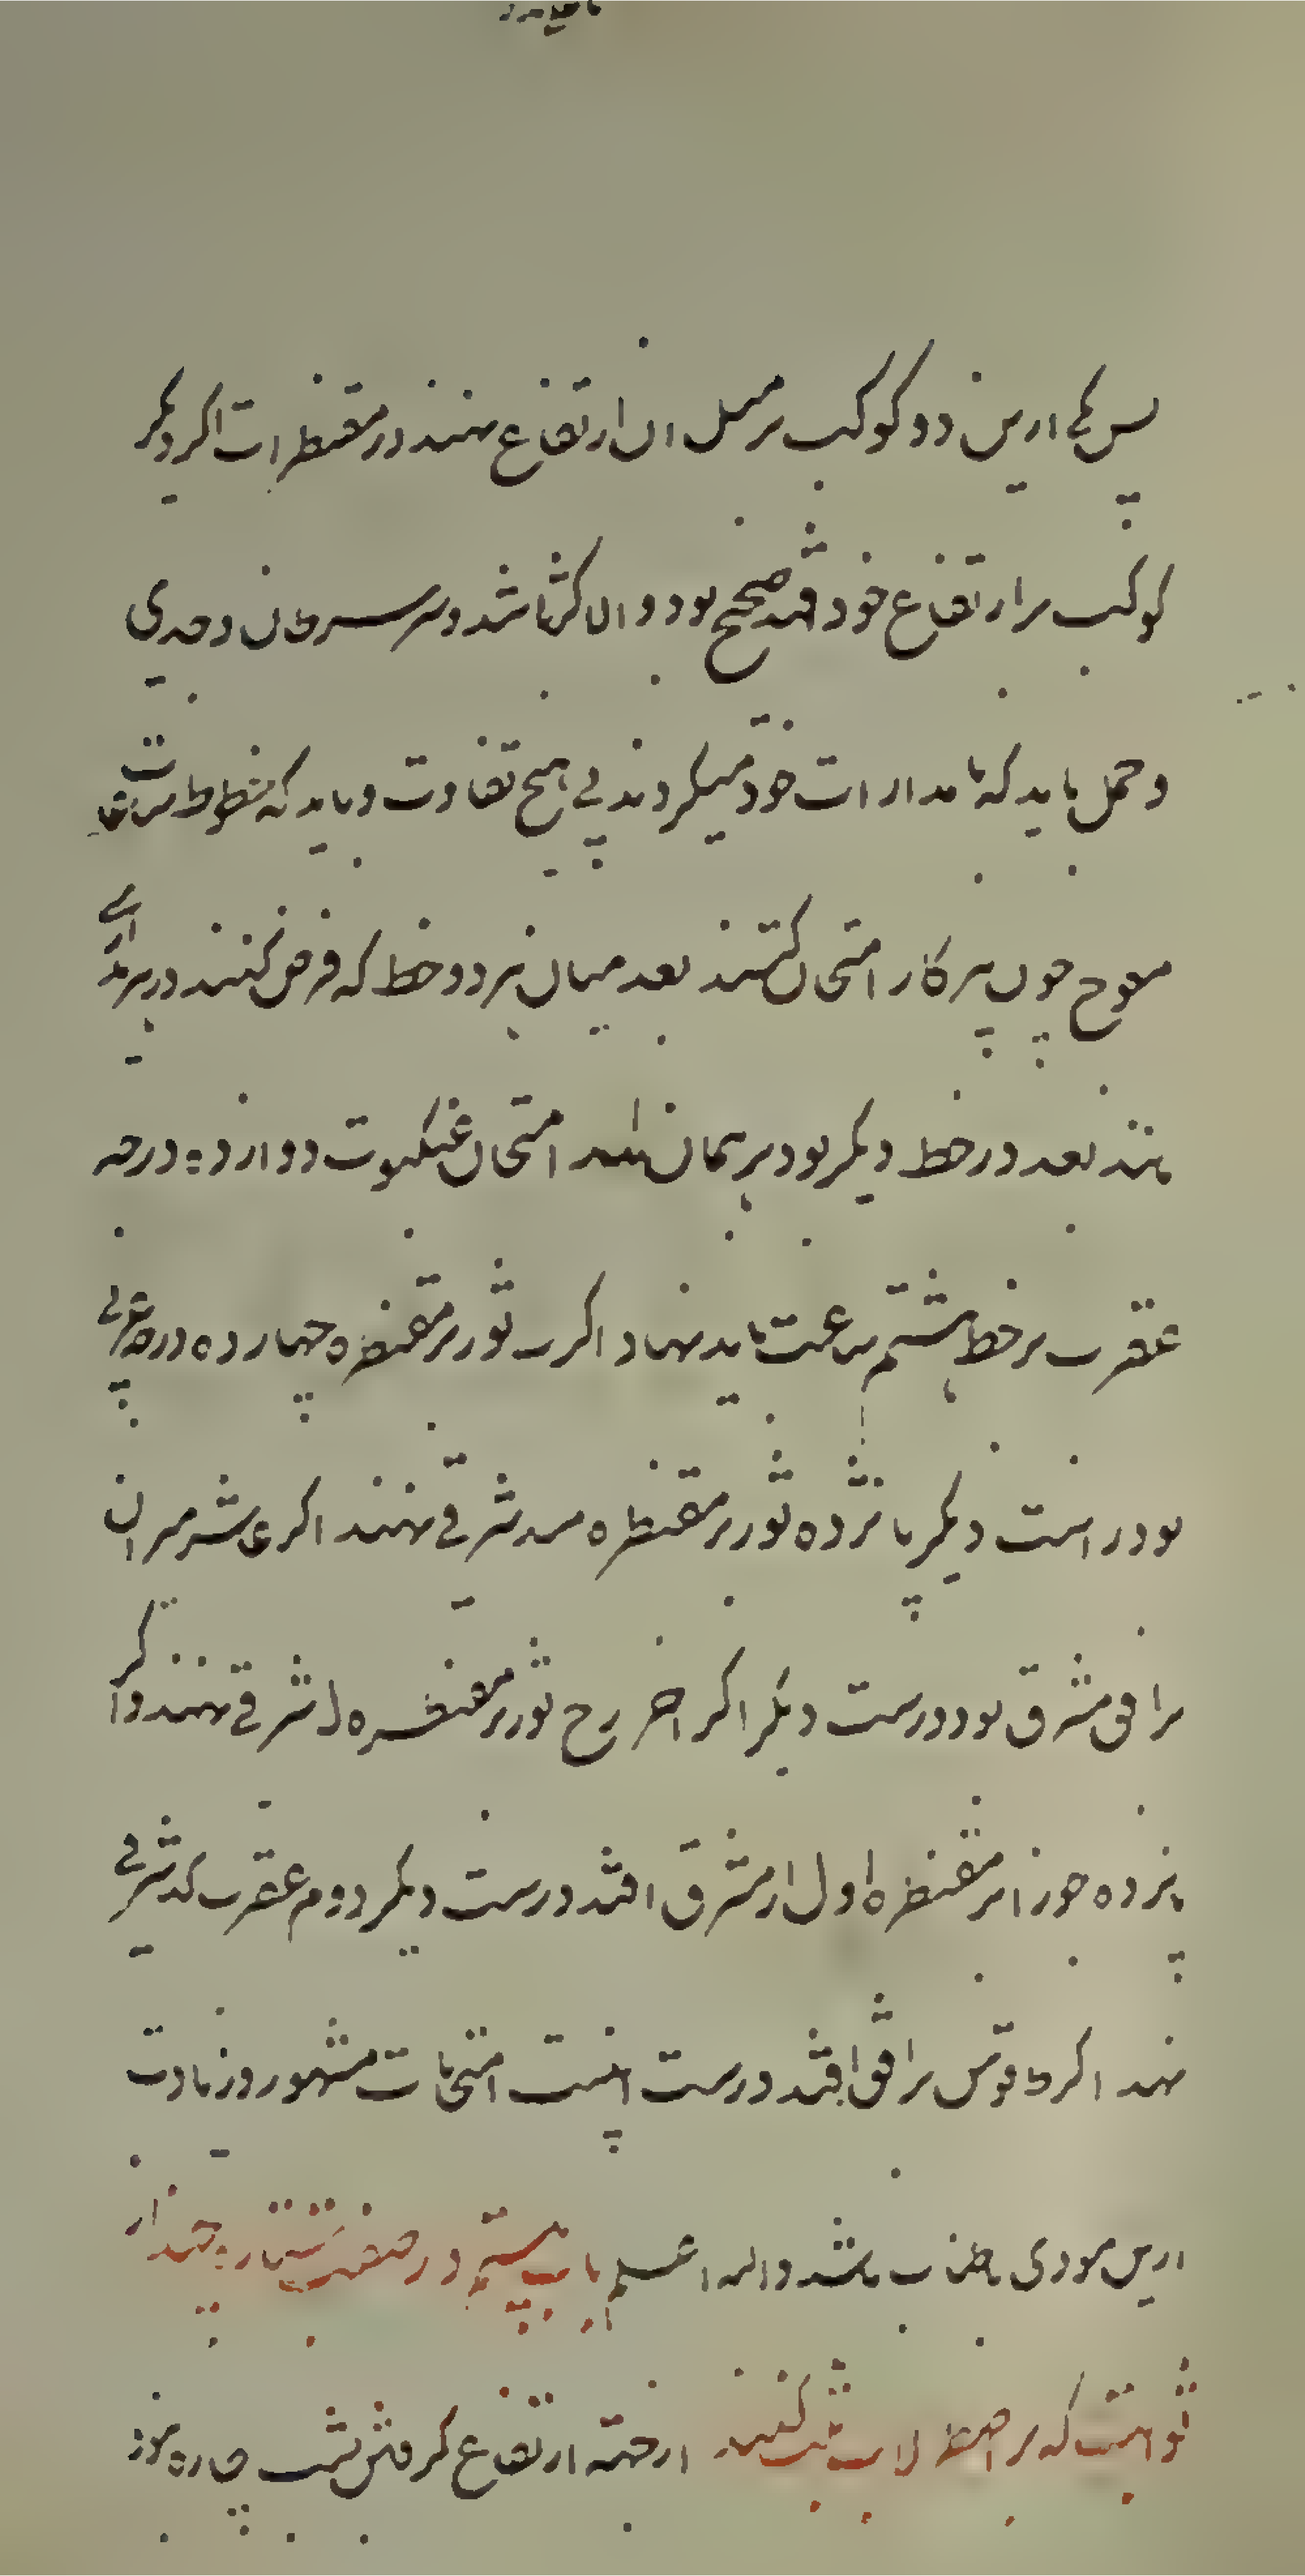 پس یکی ازین دو کوکب بر مثل آن ارتفاع نهند در مقنطرات اگر دیگر
کوکب بر ارتفاع خود افتد صحیح بود و الا کژ باشد و سر سرطان و جدی
و حمل باید که با مدارات خود میگردند بی هیچ تفاوت و باید که خطوط ساعات
معوج چون پرکار امتحان کنند بعد میان هر دو خط که فرض کنند در هر مداری
نهند بعد در خط دیگر بود بر همان امتحان عنکبوت دوازده درجه
عقرب بر خط هشتم ساعت باید نهاد اگر ثور بر مقنطره چهارده درجه غربی
بود راست دیگر پانزده ثور بر مقنطره شرقی نهند اگر عاشر میزان
بر افق مشرق بود درست دیگر اگر آخر برج ثور بر مقنطره شرقی نهند و اگر
پانزده جوزا بر مقنطره اول از مشرق افتد درست دیگر دوم عقرب شرقی
نهند اگر قوس بر افق افتد درست اینست امتحانات مشهور و زیادت
ازین مودی باطناب باشد والله اعلم باب بیستم در صفت ستاره چند از
ثوابت که بر اصطرلاب ثبت کنند از جهة ارتفاع گرفتن بشب چاره نبود